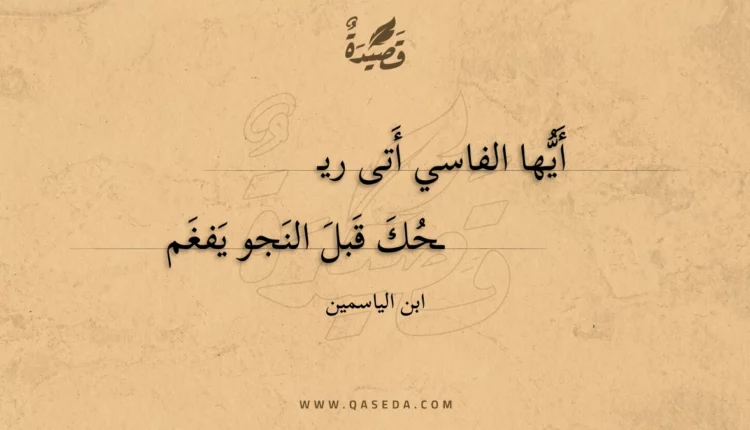 قَصِيدَةٌ
أَيُّها الفاسي أَتى ريـ
ـحُكَ قَبلَ النَجو يَفغَم
ابن الياسمين
WWW.QASEDA.COM